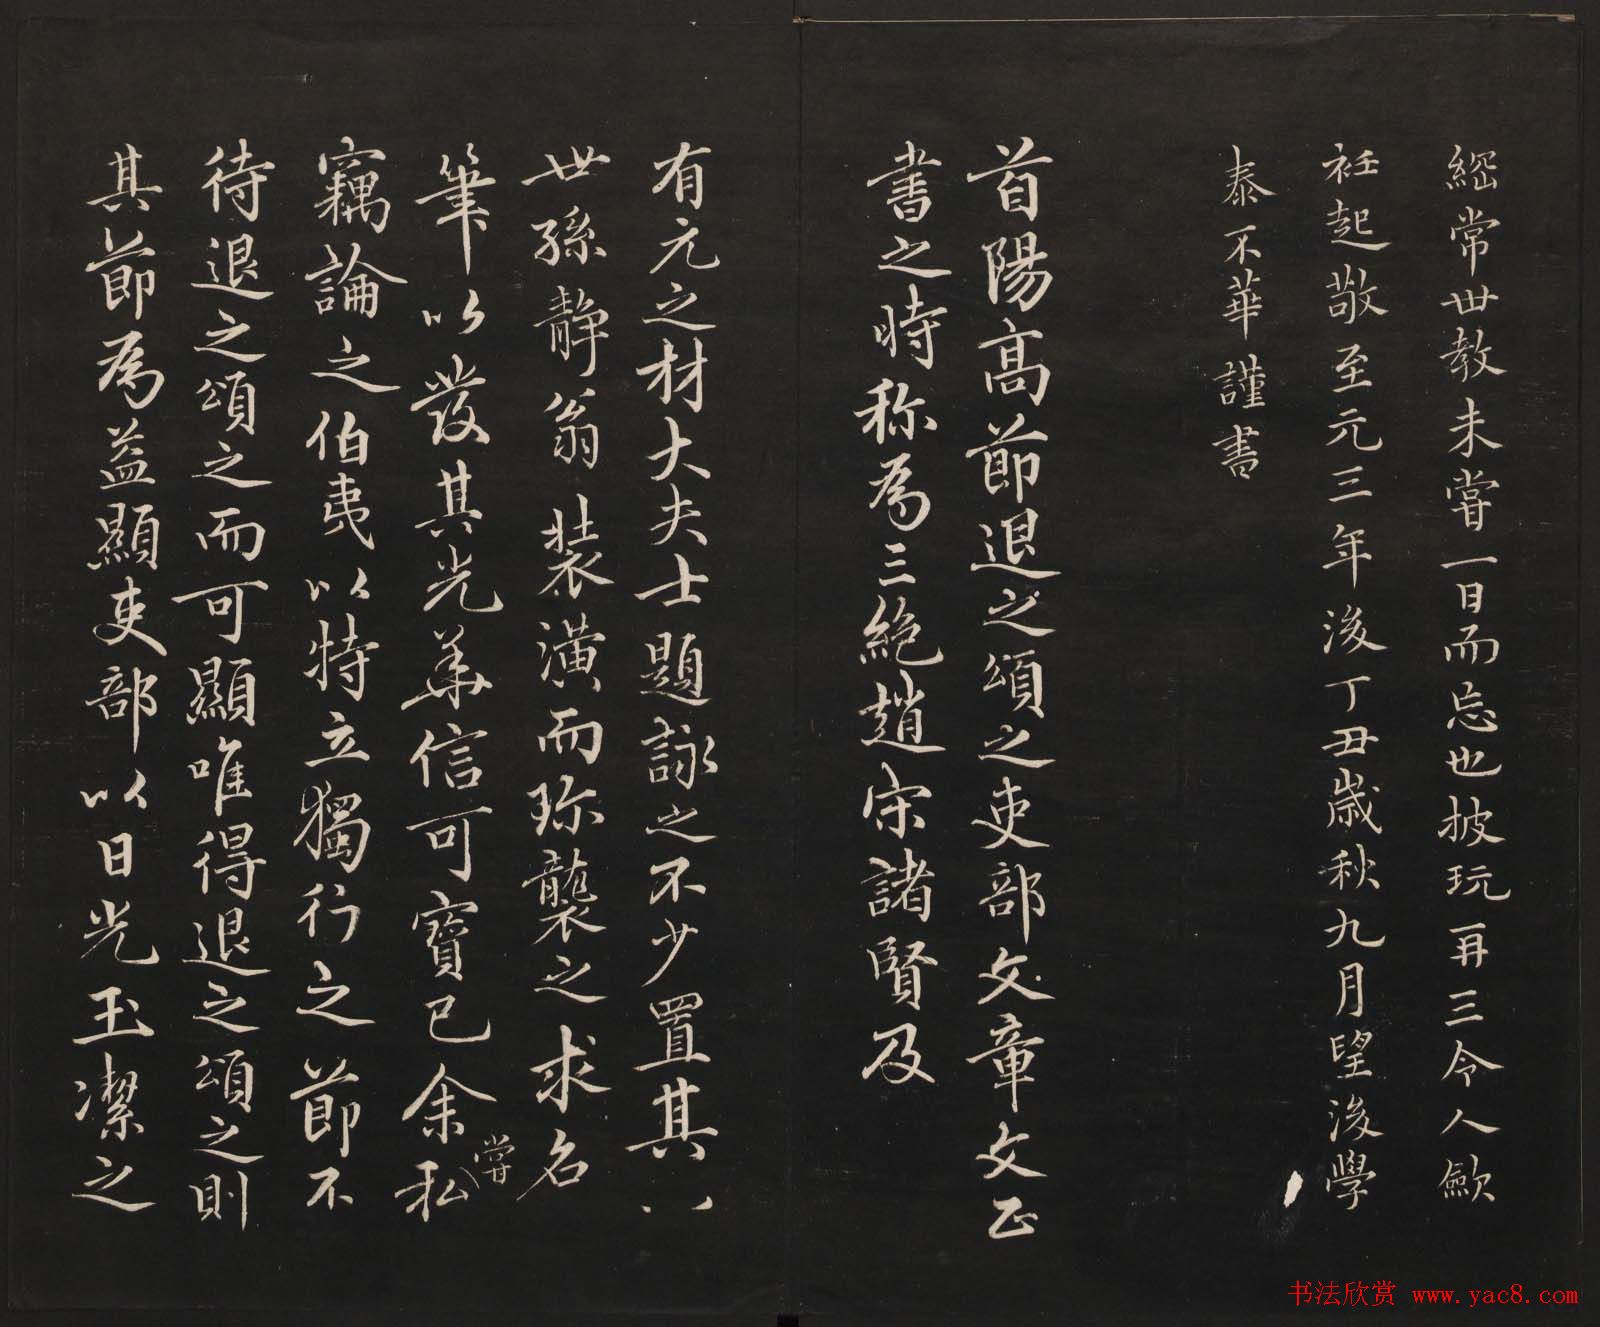 綱常世教未嘗一日而忘也披玩再三令人歛
衽起敬至元三年後丁丑歲秋九月望後學
泰不華謹書
首陽高節退之頌之吏部文章文正
書之時称為三絶趙宋諸賢及
有元之材大夫士題詠之不少置其八
世孫静翁裝潢而珎襲之求名
筆以發其光華信可寳已余嘗私
竊論之伯夷以特立獨行之節不
待退之頌之而可顯唯得退之頌之則
其節為益顯吏部以日光玉潔之
书法欣赏 www.yac8.com